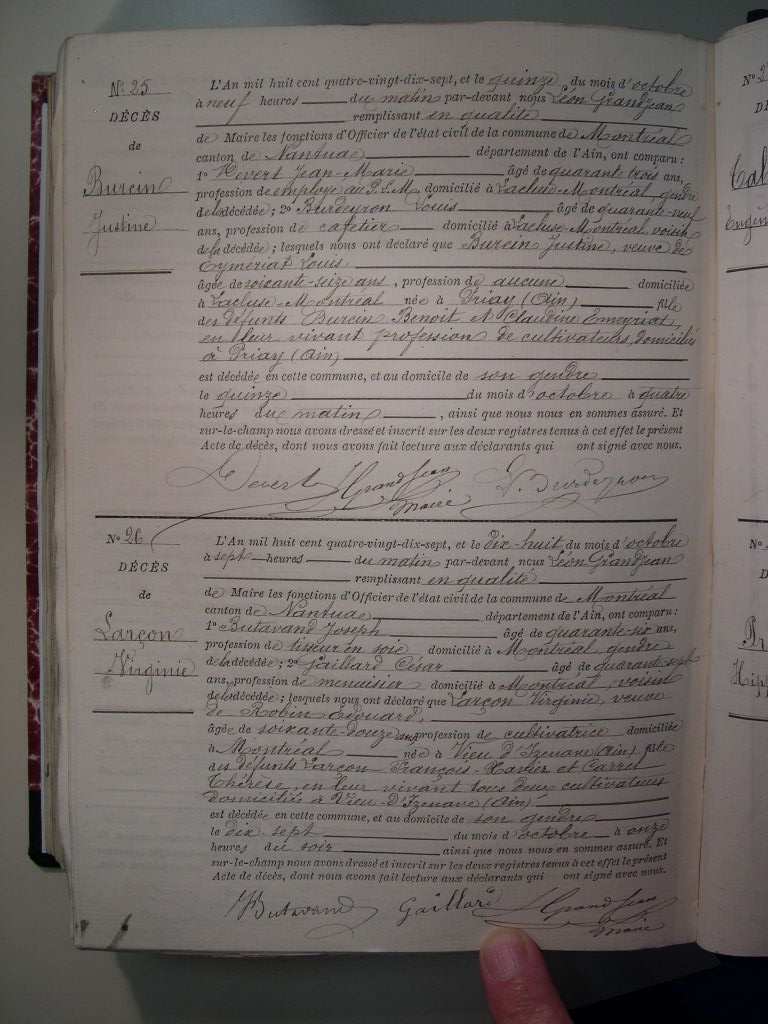 N° 25
DÉCÈS
de
Burcin
Justine
L'An mil huit cent quatre-vingt-dix-sept, et le quinze du mois d'octobre
à neuf heures du matin par-devant nous Léon Grandjean
remplissant en qualité
de Maire les fonctions d'Officier de l'état civil de la commune de Montréal
canton de Nantua département de l'Ain, ont comparu :
1° Hevert Jean Marie âgé de quarante trois ans,
profession de employé au P.L.M. domicilié à Lacluse-Montréal, gendre
de la décédée ; 2° Burdeyron Louis âgé de quarante-neuf
ans, profession de cafetier domicilié à Lacluse-Montréal voisin
de la décédée ; lesquels nous ont déclaré que Burcin Justine, veuve de
Eymeriat Louis
âgée de soixante-seize ans, profession de aucune domiciliée
à Lacluse-Montréal née à Priay (Ain) fille
des défunts Burcin Benoit et Claudine Emeyriat,
en leur vivant profession de cultivateurs, domiciliés
à Priay (Ain)
est décédée en cette commune, et au domicile de son gendre
le quinze du mois d'octobre à quatre
heures du matin, ainsi que nous nous en sommes assuré. Et
sur-le-champ nous avons dressé et inscrit sur les deux registres tenus à cet effet le présent
Acte de décès, dont nous avons fait lecture aux déclarants qui ont signé avec nous.
Hevert Grandjean L. Burdeyron
maire
N° 26
DÉCÈS
de
Larçon
Virginie
L'An mil huit cent quatre-vingt-dix-sept, et le dix-huit du mois d'octobre
à sept heures du matin par-devant nous Léon Grandjean
remplissant en qualité
de Maire les fonctions d'Officier de l'état civil de la commune de Montréal
canton de Nantua département de l'Ain, ont comparu :
1° Butavand Joseph âgé de quarante-six ans,
profession de tisseur en soie domicilié à Montréal gendre
de la décédée ; 2° Gaillard César âgé de quarante-sept
ans, profession de menuisier domicilié à Montréal, voisin
de la décédée ; lesquels nous ont déclaré que Larçon Virginie, veuve
de Robin Edouard,
âgée de soixante-douze ans profession de cultivatrice domiciliée
à Montréal née à Vieu d'Izenave (Ain) fille
des défunts Larçon François-Xavier et Carret
Thérèse, en leur vivant tous deux cultivateurs
domiciliés à Vieu-d'Izenave (Ain)
est décédée en cette commune, et au domicile de son gendre
le dix sept du mois d'octobre à onze
heures du soir ainsi que nous nous en sommes assuré. Et
sur-le-champ nous avons dressé et inscrit sur les deux registres tenus à cet effet le présent
Acte de décès, dont nous avons fait lecture aux déclarants qui ont signé avec nous.
Butavand Gaillard Grandjean
maire